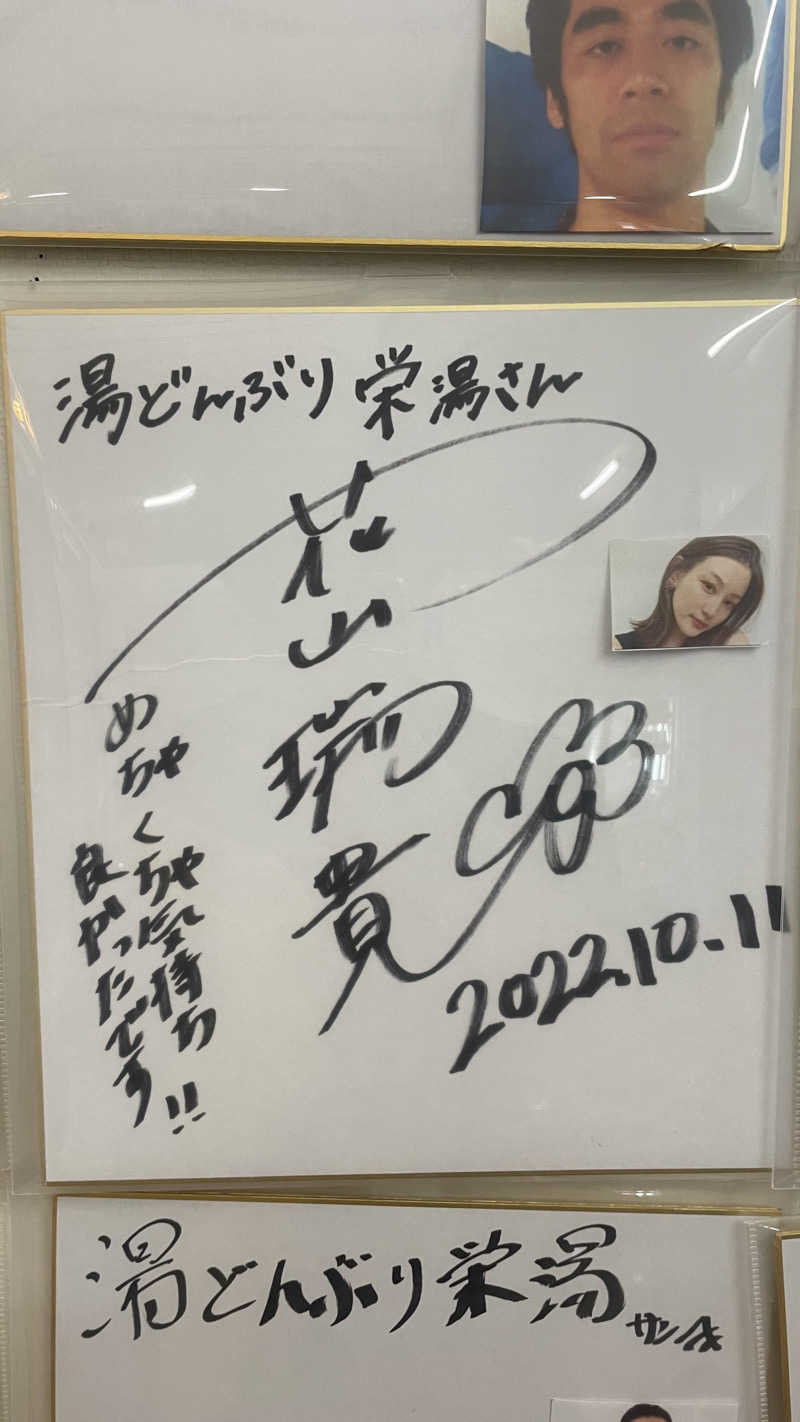 湯どんぶり栄湯さん
花山瑞貴
2022.10.11
めちゃくちゃ気持ち
良かったです!!
湯どんぶり栄湯サンへ